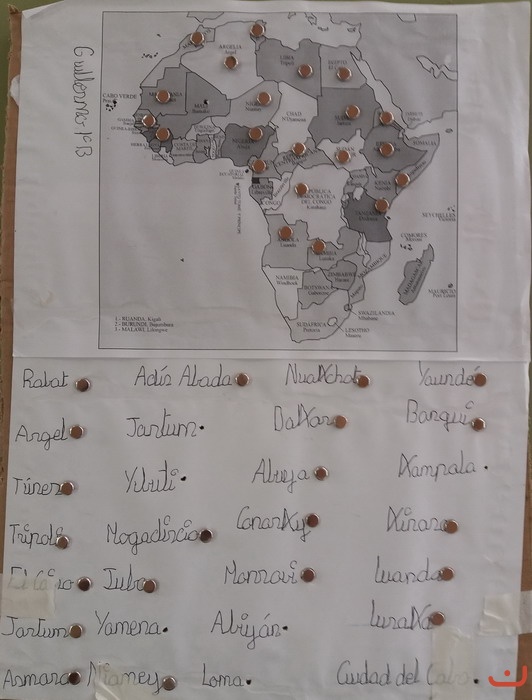 Guillermo 1º B
MARRUECOS
ARGELIA
Argel
LIBIA
Trípoli
EGIPTO
CABO VERDE
Praia
MALI
CHAD
N'Djamena
SOMALIA
REPÚBLICA
DEMOCRÁTICA
DEL CONGO
Kinshasa
CONGO
KENIA
SEYCHELLES
Victoria
COMORES
Moroni
NAMIBIA
Windhoek
BOTSWANA
ZIMBABWE
MAURICIO
Port Louis
SUAZILANDIA
Mbabane
SUDÁFRICA
Pretoria
LESOTHO
Maseru
1 - RUANDA, Kigali
2 - BURUNDI, Bujumbura
3 - MALAWI, Lilongwe
Rabat Adís Abada NuaKchot Yaundé
Argel Jartum DaKar Bangui
Túnez Yibuti Abuya Kampala
Trípoli Mogadiscio ConanKy Kinsasa
El Cairo Juba Monrovi Luanda
Jartum Yamena Abiyán LusaKa
Asmara Niamey Loma Ciudad del Cabo